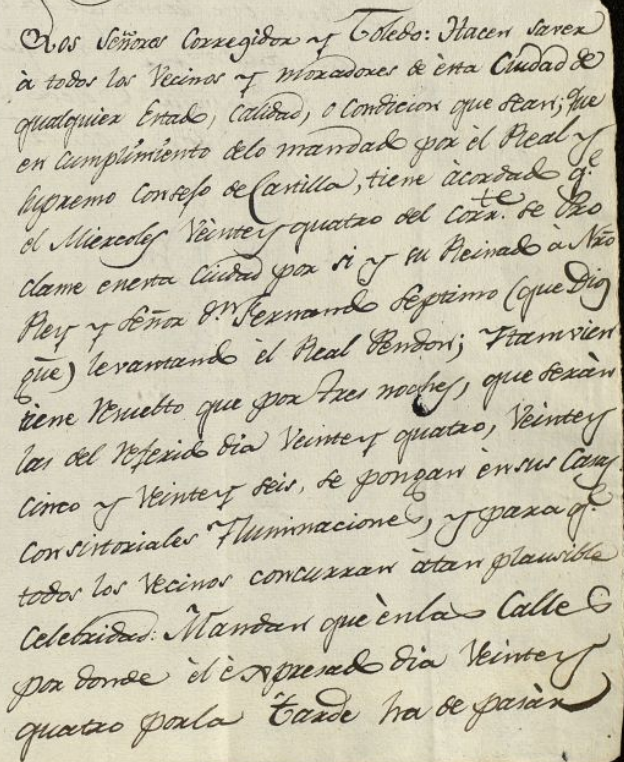 Los Señores Corregidor y Toledo: Hacen saver
à todos los Vecinos y moradores de èsta Ciudad de
qualquier Estado, Calidad, o Condicion que sean; Que
en cumplimiento delo mandado por èl Real y
Supremo Consejo de Castilla, tiene àcordado q.e
el Miercoles Veinte y quatro del corr.te se Pro
clame enesta Ciudad por si y su Reinado à Nrõ
Rey y Señor d.n Fernando Septimo (que Dios
güe) levantando èl Real Pendon; Ytamvien
tiene resuelto que por tres noches, que seràn
las del referido dia Veinte y quatro, Veinte y
Cinco y Veinte y seis, se pongan èn sus Casas
Consistoriales Yluminaciones, y para q.e
todos los Vecinos concurran àtan plausible
Celebridad: Mandan que ènlas Calles
por donde èl èxpresado dia Veinte y
quatro porla tarde ha de pasàr